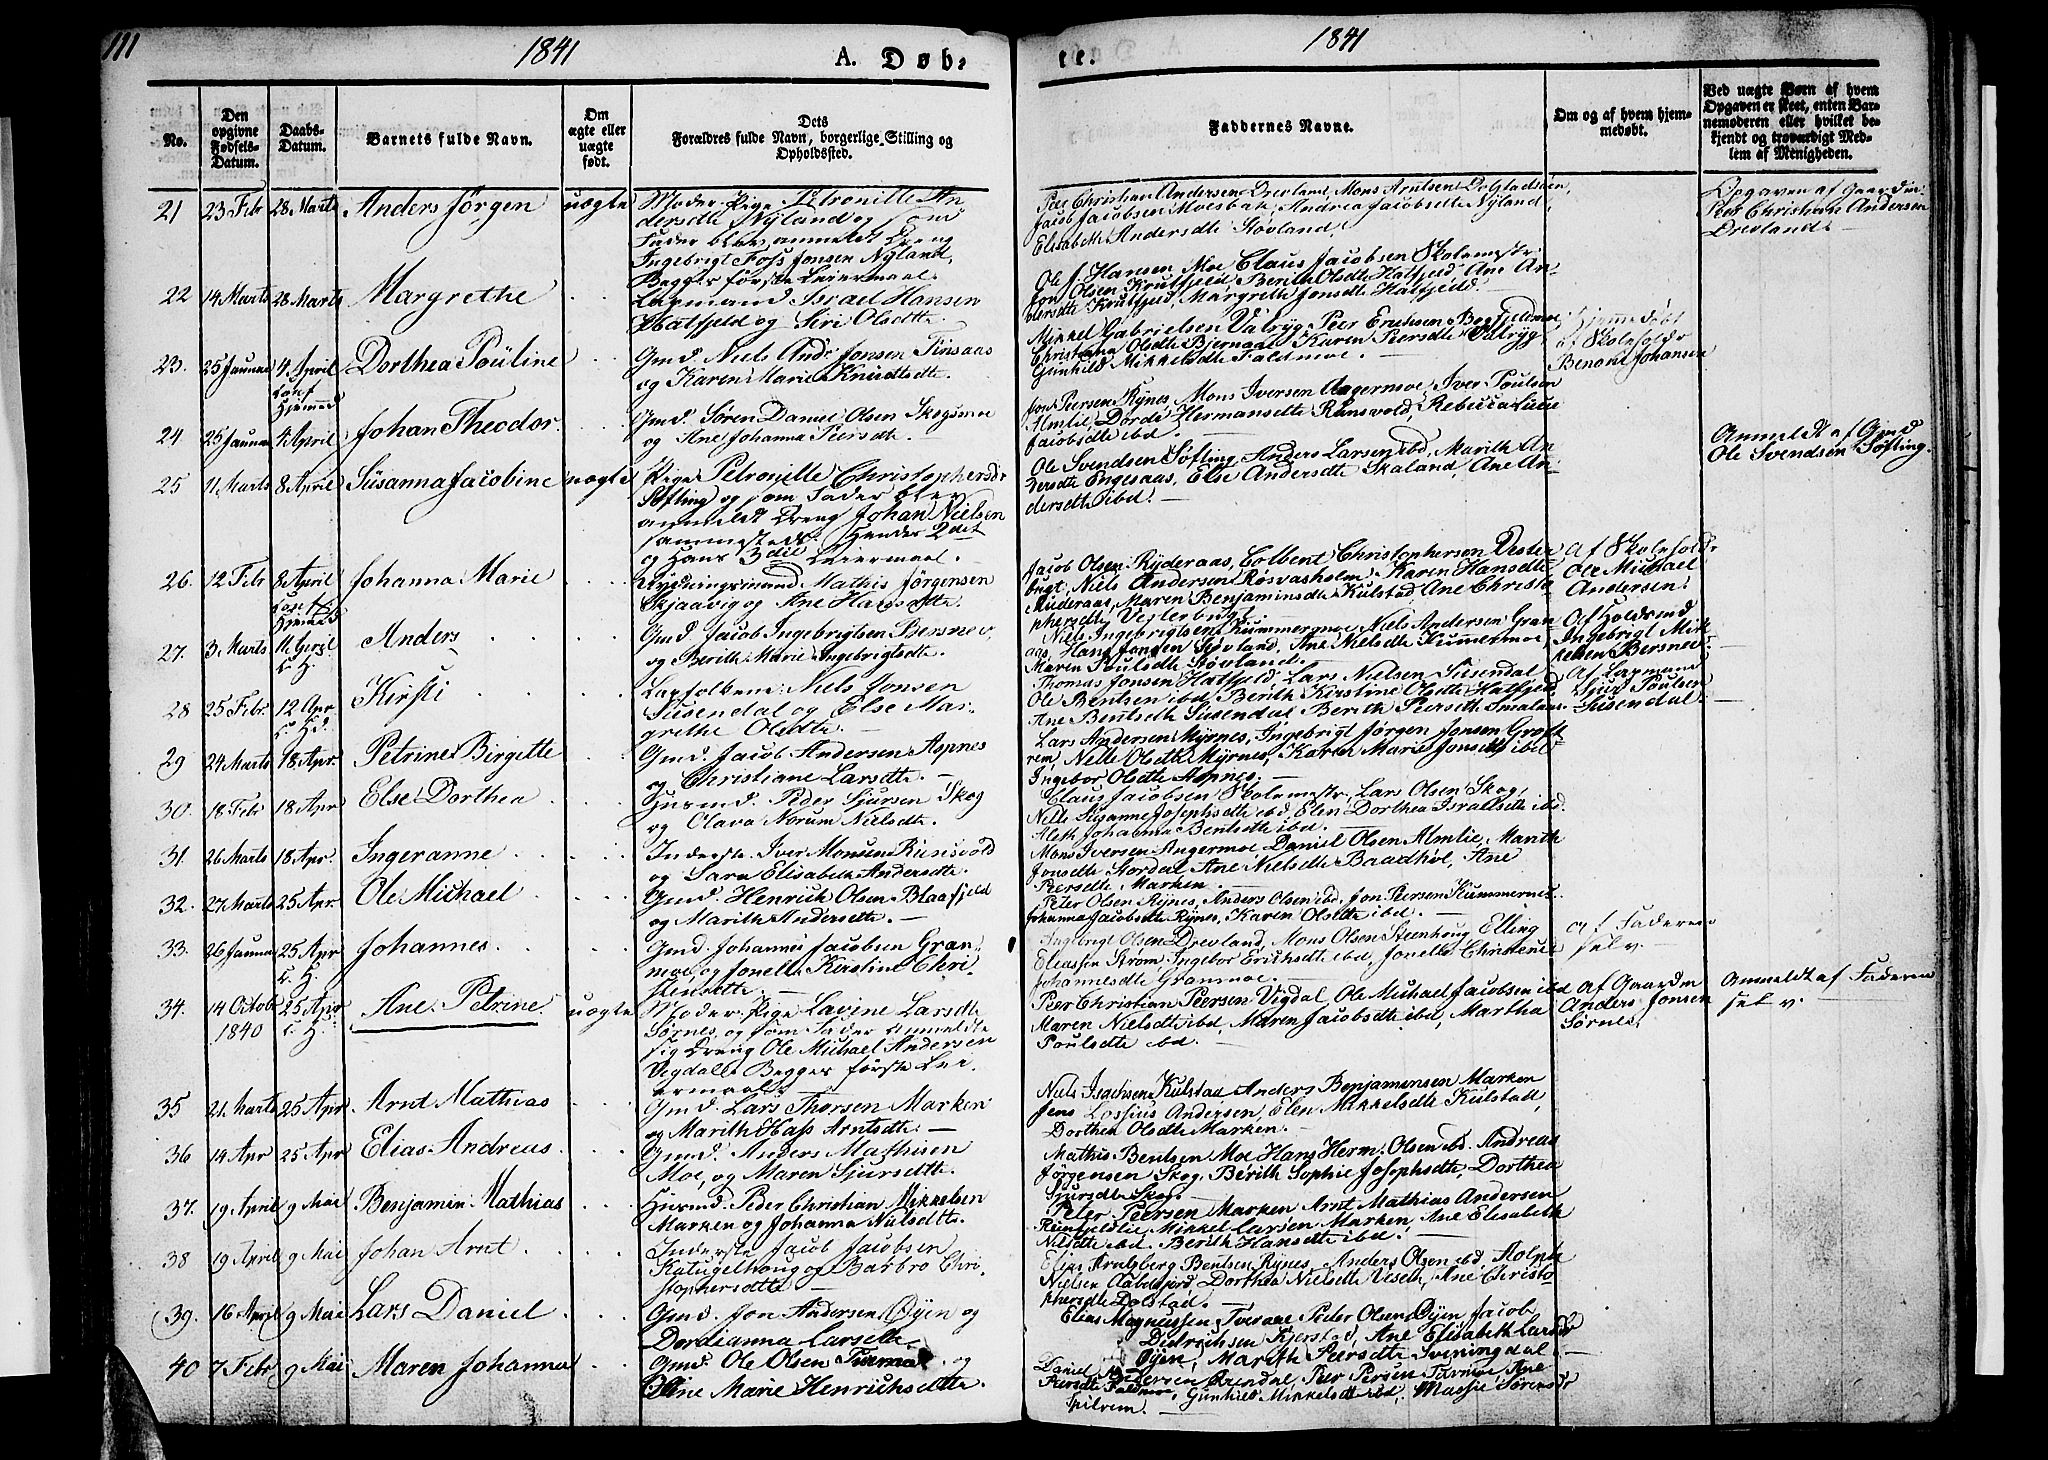 111
1841
A. Døb-
te.
1841
No.
Den opgivne Fødsels-Datum.
Daabs-Datum.
Barnets fulde Navn.
Om ægte eller uægte født.
Dets Forældres fulde Navn, borgerlige Stilling og Opholdssted.
Faddernes Navne.
Om og af hvem hjemmedøbt.
Ved uægte Børn af hvem Opgaven er skeet, enten Barnemoderen eller hvilket bekjendt og troværdigt Medlem af Menigheden.
21 23 Febr 28 Marts Anders Jörgen uægte Moder Pige Petronille An
dersdtr Nyland og som
Fader blev anmeldt Dreng
Ingebrigt Foss Jonsen Nyland,
Begges förste Leiermaal.
Peer Christian Andersen Drevland, Mons Arntsen Dolstadaasen,
Jacob Jacobsen Moesbak, Andrea Jacobsdtr Nyland
Elisabeth Andersdtr Hovland.
Opgaven af Gaardm
Peer Christian Andersen
Drevland.
22 14 Marts 28 Marts Margrethe
Lapmand Israel Hansen
Hatfjeld og Siri Olsdtr.
Ole J. Hansen Moe Claus Jacobsen Skolemestr
Jon Olsen Krutfjeld, Berith Olsdtr Hatfjeld, Ane An
dersdtr Krutfjeld, Margrethe Jonsdtr Hatfjeld.
23. 25 Januar 4 April Dorthea Pouline
Gmd. Niels And: Jonsen Finsaas
og Karen Marie Knudsdtr.
Mikkel Gabrielsen Valryg, Peer Erichsen
Christiana Olsdtr Bjernaae Karen Peersdtr Valryg
Gunhild Mikkelsdtr Faldmoe.
Hjemmedöbt
af Skoleholdr
Benoni Johansen
24 25 Januar 4 April Johan Theodor
Gmd. Sören Daniel Olsen Skogsmoe
og Ane Johanna Peersdtr.
Jon Peersen Rynes, Mons Iversen Angermoe, Iver Poulsen
Almlie, Dordi Hermansdtr Runsvold, Rebecca
Jacobsdtr ibd
25 11 Marts 8 April Susanna Jacobine uægte
Pige Petronille Christophersdr
Söfting og som Fader blev
anmeldt Dreng Johan Nielsen
sammesteds. Hendes 2det
og Hans 3die Leiermaal.
Ole Svendsen Söfting, Anders Larsen ibd, Marith An
dersdtr Engesaas, Else Andersdtr Skaland, Ane An
dersdtr ibd.
Anmeldt af Gmd
Ole Svendsen Söfting.
26. 12 Febr 8 April Johanna Marie
Rydningsmand Mathis Jörgensen
Skjaavig og Ane Hansdtr.
Jacob Olsen Ryderaas, Colbent Christophersen Vester
bugt, Niels Andersen Rosvasholm, Karen Hansdtr
Ruderaas, Maren Benjaminsdtr Kulstad Ane Christo
phersdtr Vesterbugt.
Af Skoleholdr
Ole Michael
Andersen.
27. 3 Marts 11 April Anders
Gmd. Jacob Ingebrigtsen Bersnev
og Berith Marie Ingebrigtsdtr.
Niels Ingebrigtsen Kummermoe, Niels Andersen Gran
aas, Hans Jonsen Hovland, Ane Nielsdtr Kummermoe,
Maren Poulsdtr Hovland.
Af Huusmd
Ingebrigt Mik
kelsen Bersnev
28 25 Febr. 12 Apr Kirsti
Lapfolkene: Niels Jonsen
Susendal og Else Mar-
grethe Olsdtr.
Thomas Jonsen Hatfjeld, Lars Nielsen Susendal
Ole Bentsen ibd Berith Kirstine Olsdtr Hatfjeld
Ane Bentsdtr Susendal Berith Peersdtr
Af Lapmand
Sjur Poulsen
Susendal.
29 24 Marts 18 Apr. Petrine Birgitte
Gmd. Jacob Andersen Aspnes
og Christiane Larsdtr.
Lars Andersen Myrnes, Ingebrigt Jörgen Jonsen Groft
rem, Nelle Olsdtr Myrnes, Karen Marie Jonsdtr ibd
Ingebor Olsdtr Aspnes.
30. 18 Febr 18 Apr Else Dorthea
Husmd. Peder Sjursen Skog
og Olava Norum Nielsdtr.
Claus Jacobsen Skolemestr, Lars Olsen Skog,
Nelle Susanne Josephsdtr ibd, Elen Dorthea Israelsdtr ibd.
Aleth Johanna Bentsdtr ibd.
31. 26 Marts 18 Apr. Inger anne
Inderste Iver Monsen Runsvold
og Sara Elisabeth Andersdtr.
Mons Iversen Angermoe, Daniel Olsen Almlie, Marith
Jonsdtr Stordal Ane Nielsdtr Baadhöe, Ane
Peersdtr Marken.
32. 27 Marts 25 Apr. Ole Michael
Gmd. Henrich Olsen Blaafjeld
og Marith Andersdtr.
Peter Olsen Rynes, Anders Olsen ibd, Jon Peersen Kummernes
Johanna Jacobsdtr Rynes, Karen Olsdtr ibd.
33. 26 Januar 25 Apr Johannes
Gmd. Johannes Jacobsen Gran-
moe og Jonelle Kirstine Chri-
stensdtr.
Ingebrigt Olsen Drevland, Mons Olsen Steenhoug, Elling
Eliassen Ström, Ingebor Erichsdtr ibd, Jonelle Christense
Johannesdtr Granmoe.
af Faderen
selv.
34. 14 Octob 1840 25 Apr Ane Petrine uægte
Moder Pige Lavine Larsdtr
Sörnes, og som Fader anmeldte
sig Dreng Ole Michael Andersen
Vegdal. Begges förste Lei
ermaal.
Peer Christian Peersen Vigdal, Ole Michael Jacobsen ibd
Maren Nielsdtr ibd, Maren Jacobsdtr ibd, Martha
Poulsdtr ibd.
af Gaardm
Anders Jonsen
Sörnes.
Anmeldt af Faderen
selv.
35 21 Marts 25 Apr. Arnt Mathias
Gmd. Lars Thorsen Marken
og Marith Hass Arntsdtr.
Niels Isachsen Kulstad Anders Benjaminsen Marken
Jens Lossius Andersen, Elen Mikkelsdtr Kulstad,
Dorthea Olsdtr Marken.
36 14 Apr 25 Apr Elias Andreas
Gmd. Anders Mathisen
Moe, og Maren Sjursdtr.
Mathis Bentsen Moe Hans Herm. Olsen ibd. Andreas
Jörgensen Skog, Berith Sophie Josephsdtr, Dorthea
Sjursdtr Skog.
37. 19 April 9 Mai Benjamin Mathias
Husmd. Peder Christian Mikkelsen
Marken og Johanna Nilsdtr.
Peter Peersen Marken Arnt Mathias Andersen
Remfjeldlie, Mikkel Larsen Marken, Ane Elisabeth
Nilsdtr ibd. Berith Hansdtr ibd.
38 19 April 9 Mai Johan Arnt
Inderste Jacob Jacobsen
Katugelhoug og Barbro Chri-
stophersdtr
Bentsen Rynes, Anders Olsen ibd, Rolph
Nielsen Aabakfjord, Dorthea Nielsdtr Ane Christo
phersdtr Dolstad.
39. 16 April 9 Mai Lars Daniel
Gmd. Jon Andersen Öyen og
Dordianna Larsdtr
Elias Magnussen Tveraae Peder Olsen Öyen, Jacob
Diderichsen Kjerstad, Ane Elisabeth Larsdtr
Öyen, Marith Peersdtr Sveningdal.
40 7 Febr 9 Mai Maren Johanna
Gmd. Ole Olsen Turmoe og
Oline Marie Henrichsdtr.
Daniel Andersen Örendal, Peer Persen Turmoe Ane
Peersdtr Faldmoe, Gunhild Mikkelsdtr ibd, Massie Sörensdr
Spilrem.